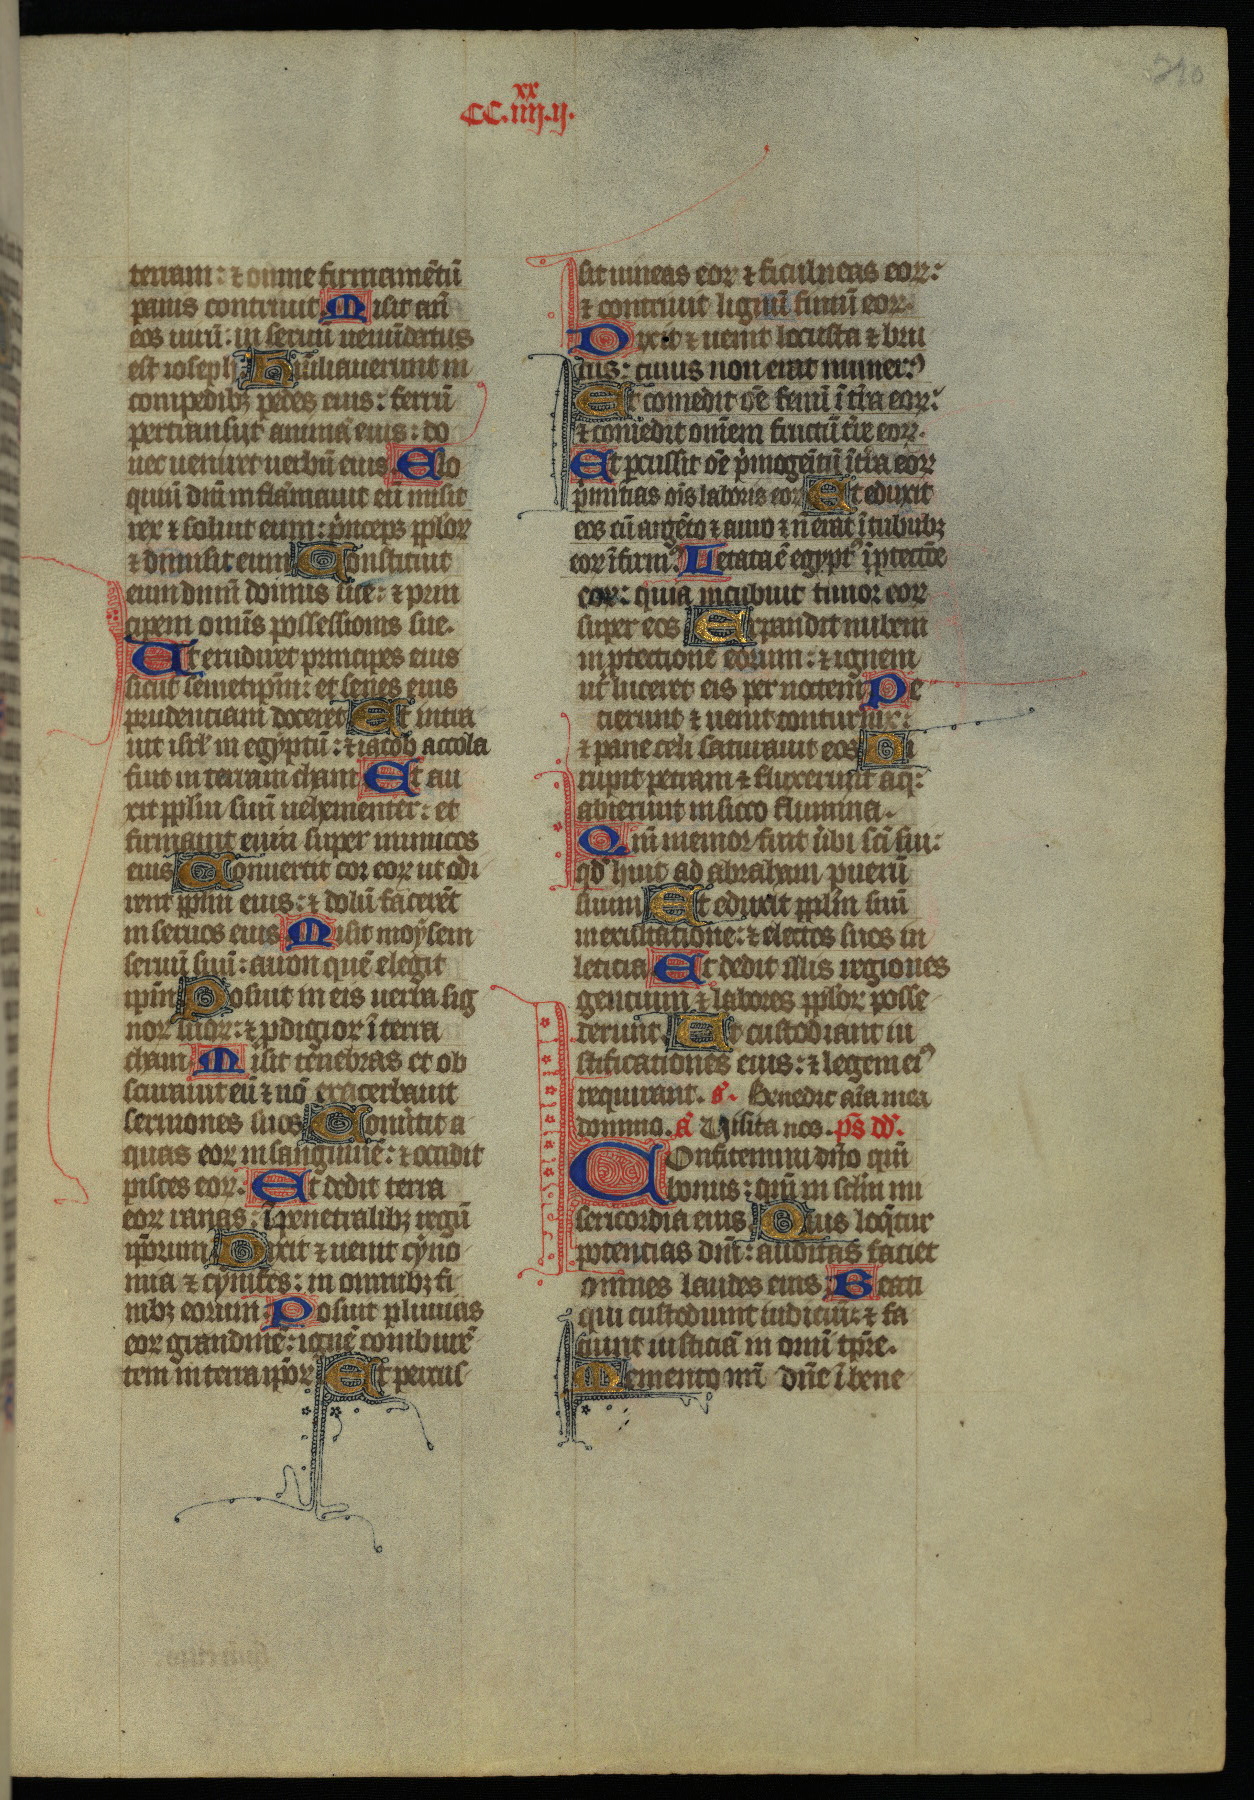 xx
CC.iiij.ij.
210
terram: ⁊ omne firmamētū
panis contriuit. Misit añ
eos uirū: in seruū uenūdatus
est ioseph: Hūiliauerunt in
compedibꝫ pedes eius: ferrū
pertransiuit animā eius: do
nec ueniret uerbū eius. Elo
quiū dñi inflāmauit eū misit
rex ⁊ soluit eum: prīceps pplōꝝ
⁊ dimisit eum Constituit
eum dnm̄ domus sue: ⁊ prin
cipem omīs possessionis sue.
Ut erudiret principes eius
sicut semetipm̄: et senes eius
prudenciam doceret Et intra
uit isrl̄ in egyptū: ⁊ iacob accola
fuit in terram cham Et au
xit pplm̄ suū uehementer: et
firmauit eum super inimicos
eius Conuertit cor eoꝝ ut odi
rent pplm̄ eius: ⁊ dolū facerēt
in seruos eius Misit moysem
seruū suū: aaron quē elegit
ipm̄ Posuit in eis uerba sig
noꝝ suoꝝ: ⁊ ꝓdigioꝝ ī terra
cham Misit tenebras et ob
scurauit eū ⁊ nō exacerbauit
sermones suos Conūtit a
quas eoꝝ in sanguinē: ⁊ occidit
pisces eoꝝ. Et dedit terra
eoꝝ ranas: ī penetralibꝫ regū
ipōrum Dixit ⁊ uenit cyno
mia ⁊ cynifes: in omnibꝫ fi
nibꝫ eorum Posuit pluuias
eoꝝ grandinē: ignē comburē
tem in terra ipōꝝ Et percus
sit uineas eoꝝ ⁊ ficulneas eoꝝ:
⁊ contriuit lignū finiū eoꝝ.
Dixit ⁊ uenit locusta ⁊ bru
cus: cuius non erat numerꝰ
Et comedit oē fenū ī tr̄a eoꝝ:
⁊ comedit omēm fructū tr̄e eoꝝ.
Et ꝑcussit oē pͥmogenitū ī tr̄a eoꝝ
pͥmitias oīs laboris eoꝝ Et eduxit
eos cū argēto ⁊ auro ⁊ n̄ erat ī tribubꝫ
eoꝝ īfirmꝰ Letata ē egyptꝰ ī ꝓfectiōe
eoꝝ: quia incubuit timor eoꝝ
super eos Expandit nubem
in ꝓtectionē eorum: ⁊ ignem
ut luceret eis per noctem Pe
tierunt ⁊ uenit coturnix:
⁊ pane celi saturauit eos Di
rupit petram ⁊ fluxerunt aq̄:
abierunt in sicco flumina.
Qm̄ memor fuit ūbi sc̄i sui:
qd̄ huit ad abraham puerū
suum Et eduxit pplm̄ suū
in exultatione: ⁊ electos suos in
leticia Et dedit illis regiones
gentium ⁊ labores pplōꝝ posse
derunt. Ut custodiant iu
stificationes eius: ⁊ legem eiꝰ
requirant. Benedic aīa mea
domino. a Visita nos. ps̄ dd̄.
Confitemini dn̄o qm̄
bonus: qm̄ in sclm̄ mi
sericordia eius Quis loq̄tur
potencias dn̄i: auditas faciet
omnes laudes eius Beati
qui custodiunt iudiciū: ⁊ fa
ciunt iusticiā in omī tp̄re.
Memento nr̄i dn̄e ī bene